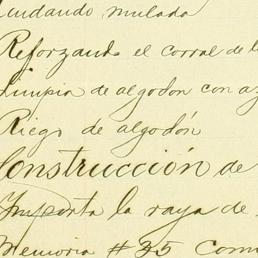 Cuidando mulada
Reforzando el corral de l
Limpia de algodon con az
Riego de algodón
Construcción de
Importa la raya de
Memoria #35 Com